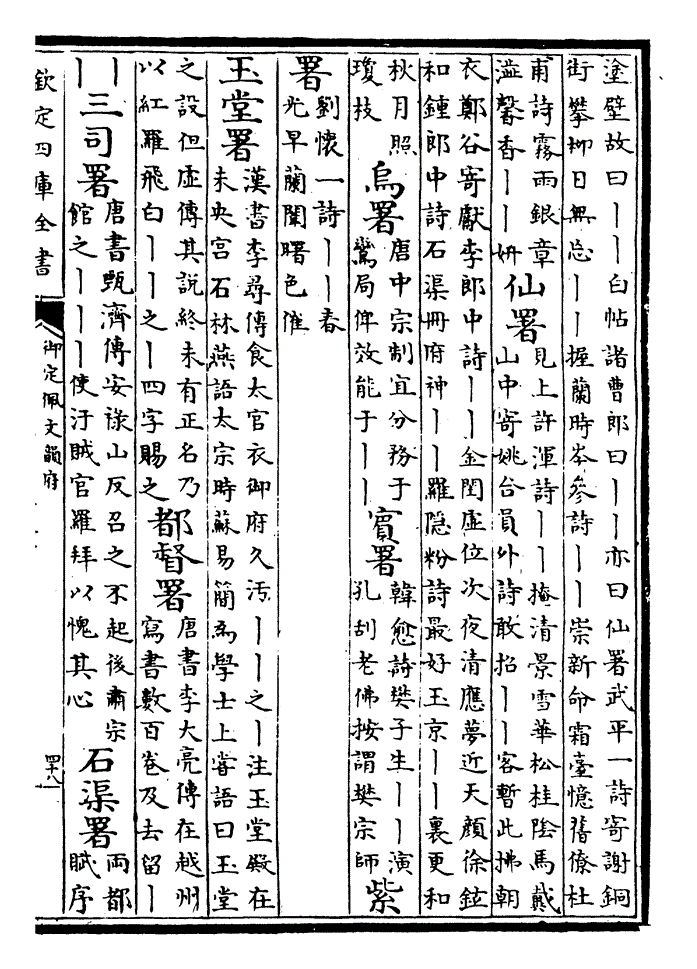 塗壁故曰丨丨白帖諸曹郎曰丨丨亦曰仙署武平一詩寄謝銅
街攀柳日無忘丨丨握蘭時岑參詩丨丨崇新命霜臺憶舊僚杜
甫詩霧雨銀章
澁馨香丨丨妍
仙署
見上許渾詩丨丨掩清景雪華松桂陰馬戴
山中寄姚台員外詩敢招丨丨客暫此拂朝
衣鄭谷寄獻李郎中詩丨丨金閏虛位次夜清應夢近天顏徐鉉
和鍾郎中詩石渠冊府神丨丨羅隱粉詩最好玉京丨丨裏更和
秋月照
瓊枝
烏署
唐中宗制宜分務于
鸞局俾效能于丨丨
賓署
韓愈詩樊子坐丨丨演
孔刮老佛按謂樊宗師
紫
署
劉懷一詩丨丨春
光早蘭闈曙色催
玉堂署
漢書李尋傳食太官衣御府久汚丨丨之丨注玉堂殿在
未央宫石林燕語太宗時蘇易簡為學士上嘗語曰玉堂
之設但虛傳其說終未有正名乃
以紅羅飛白丨丨之丨四字賜之
都督署
唐書李大亮傳在越州
寫書數百卷及去留丨
丨
丨
三司署
唐書甄濟傳安祿山反召之不起後肅宗
館之丨丨丨使汙賊官羅拜以愧其心
石渠署
兩都
賦序
欽定四庫全書
御定佩文韻府
四十八